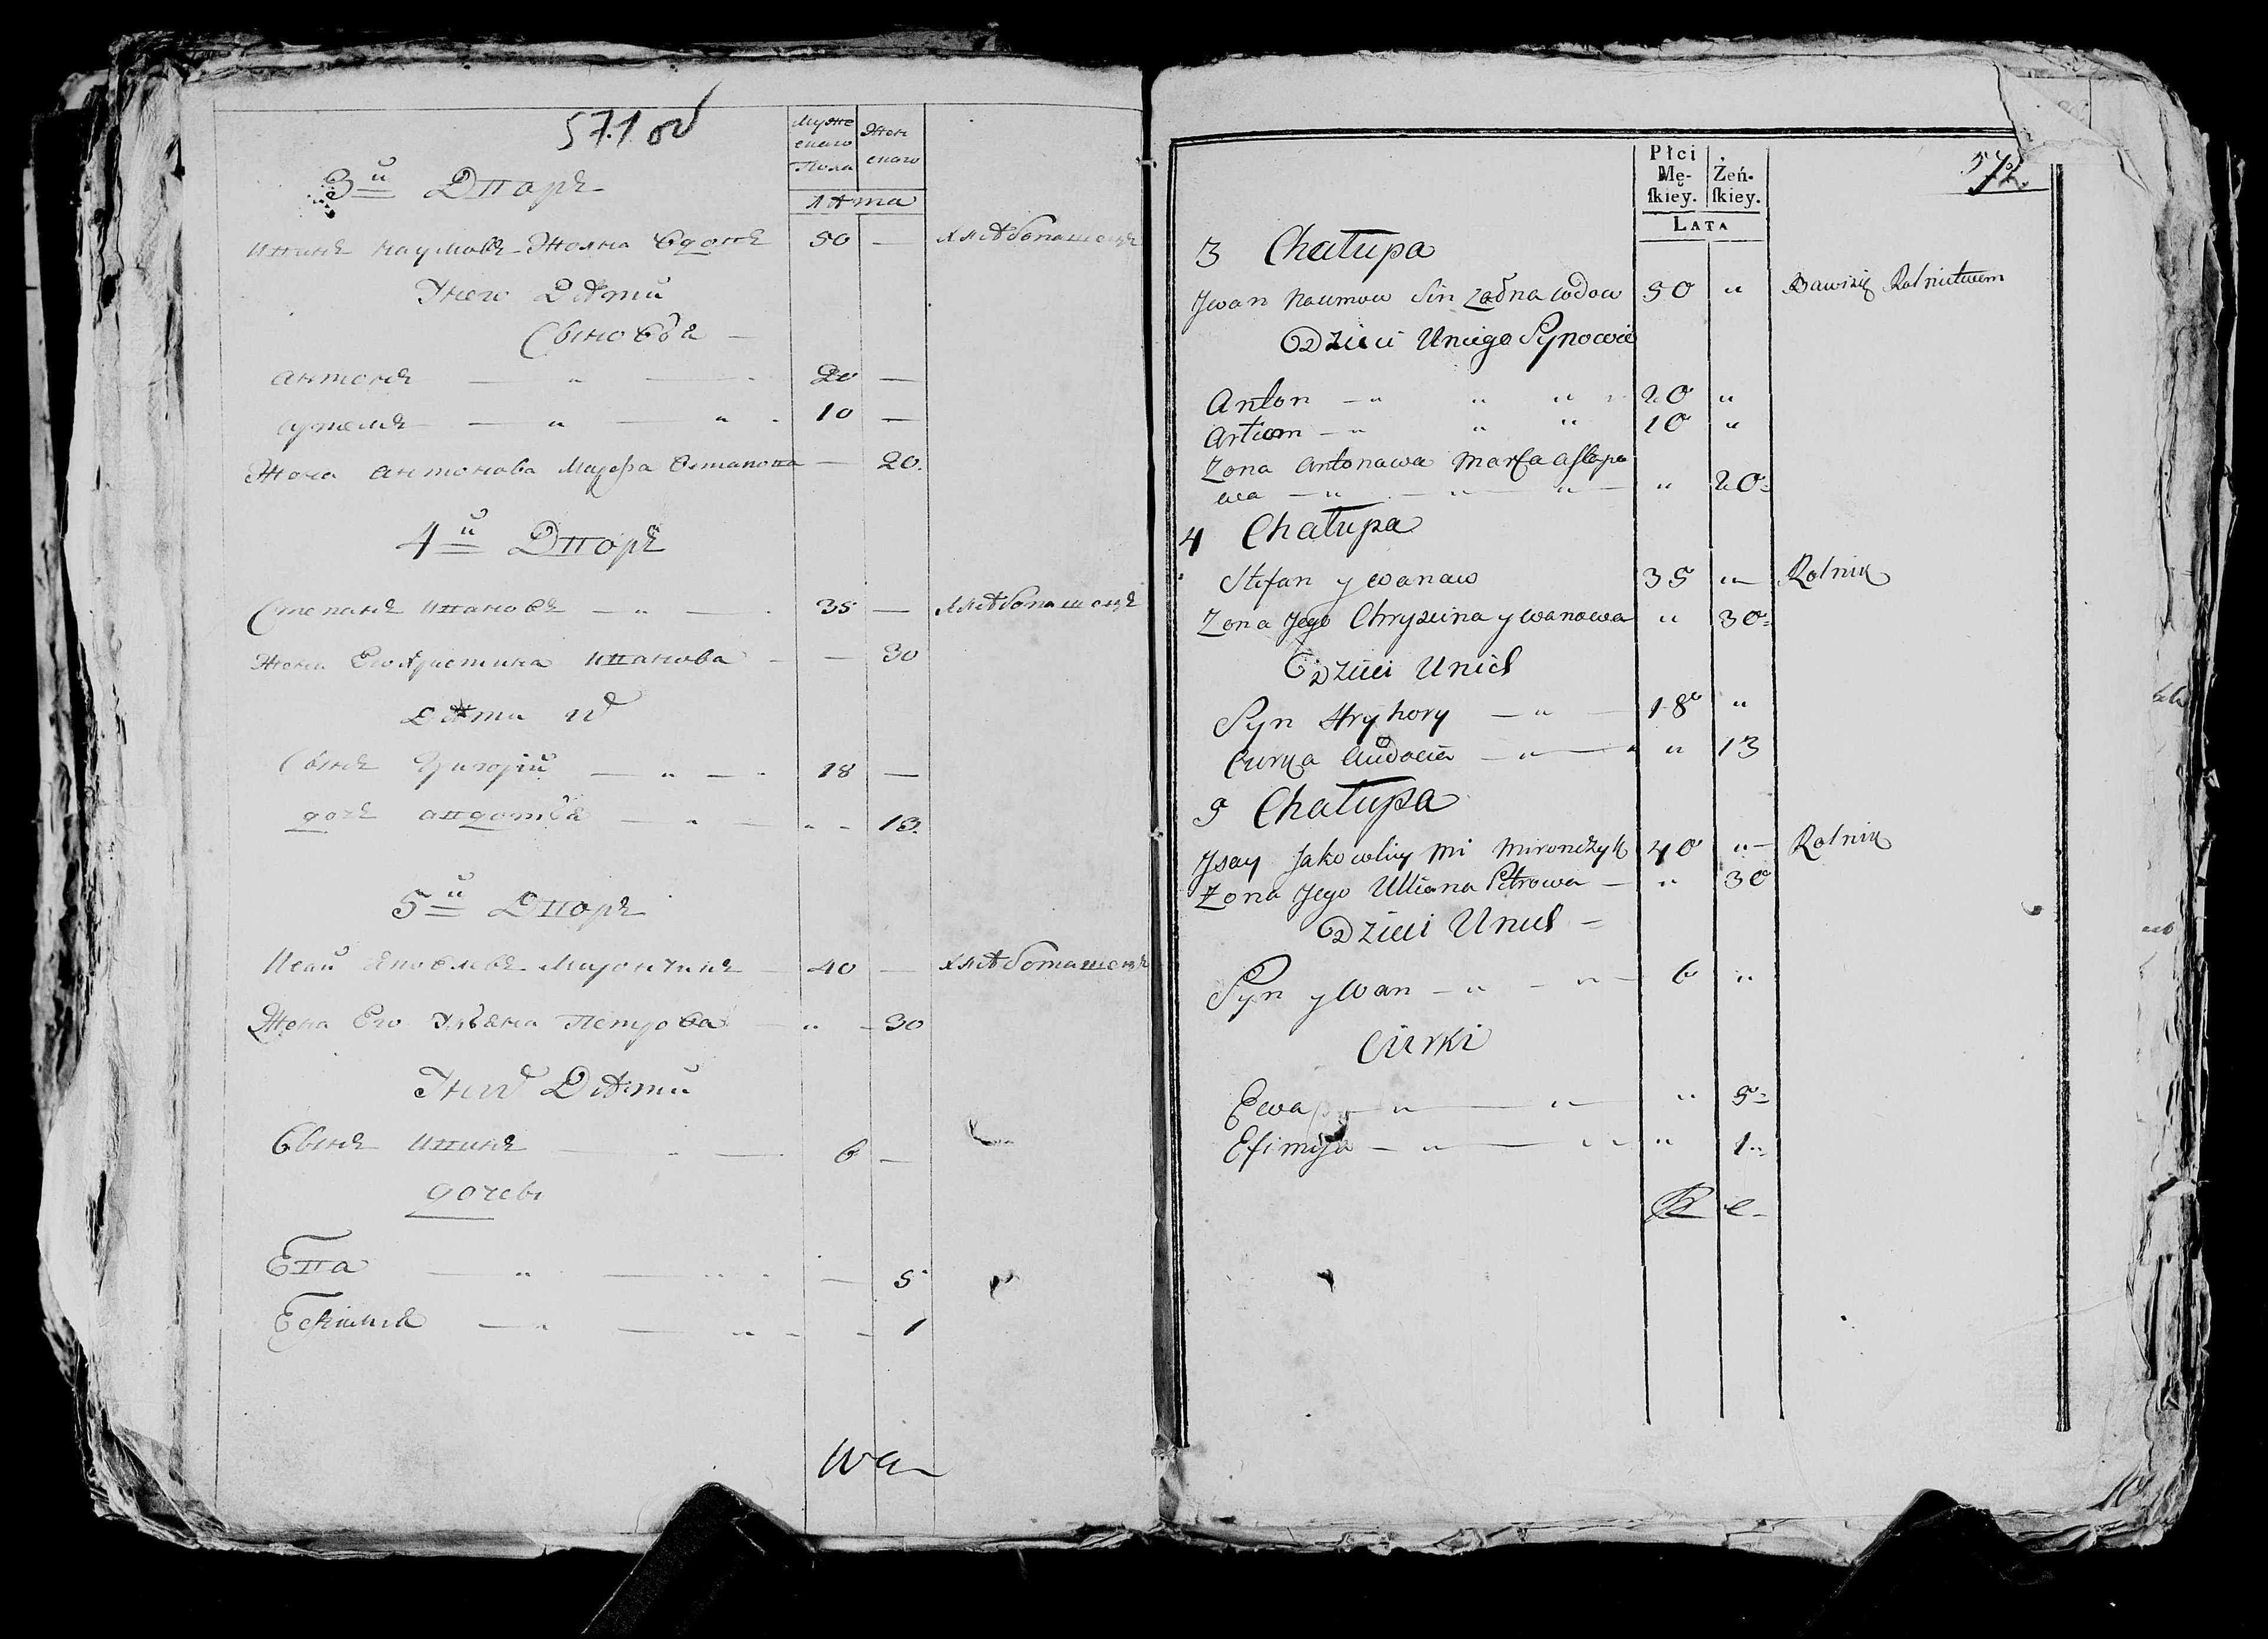 571 об
Муже
скаго
Пола
Жен
скаго
Лѣта
3й Дворъ
Иванъ Наумовъ Жолна вдовъ 50 — хлѣбопашецъ
У него Дѣти
Сыновья —
Антонъ — „ — 20 —
Артемъ — „ — „ 10 —
Жена Антонова Марѳа Остапова — 20.
4й Дворъ
Степанъ Ивановъ — „ — 35 — хлѣбопашецъ
Жена Его Христина Иванова — — 30
Дѣти их
Сынъ Григорій — „ — 18 —
дочь Авдотья — „ — „ - 13.
5й Дворъ
Исай Яковлевъ Мирончикъ — 40 — хлѣбопашецъ
Жена Его Ульяна Петрова — „ - 30
У них Дѣти
Сынъ Иванъ — „ — 6 —
дочери
Ева — „ — „ — 5
Ефимія — „ — „ - - 1
wa
572.
Płci
Mę-
ſkiey.
Żeń-
ſkiey.
LATA
3 Chałupa
Jwan Naumow Sin Żołna wdow 50 „ Bawisię Rolnictwem
Dzieci Uniego Synowie
Anton — „ „ „ 20 „
Artiom — „ „ „ 10 „
Żona Antonawa Marfa Astapo
wa — „ — „ — „ — „ 20
4 Chałupa
Stefan ywanaw 35 „ Rolnik
Żona Jego Chryscina ywanowa „ 30
Dzieci Unich
Syn Hryhory — „ — 18 „
Curka Audocia — „ — „ 13
5 Chałupa
Jsay Jakowliw Mironczyk 40 „ Rolnik
Żona Jego Ulliana Petrowa — „ 30
Dzieci Unich
Syn ywan — „ — „ — 6 „
Curki
Ewa — „ — „ — „ 5
Efimija — „ — „ „ 1